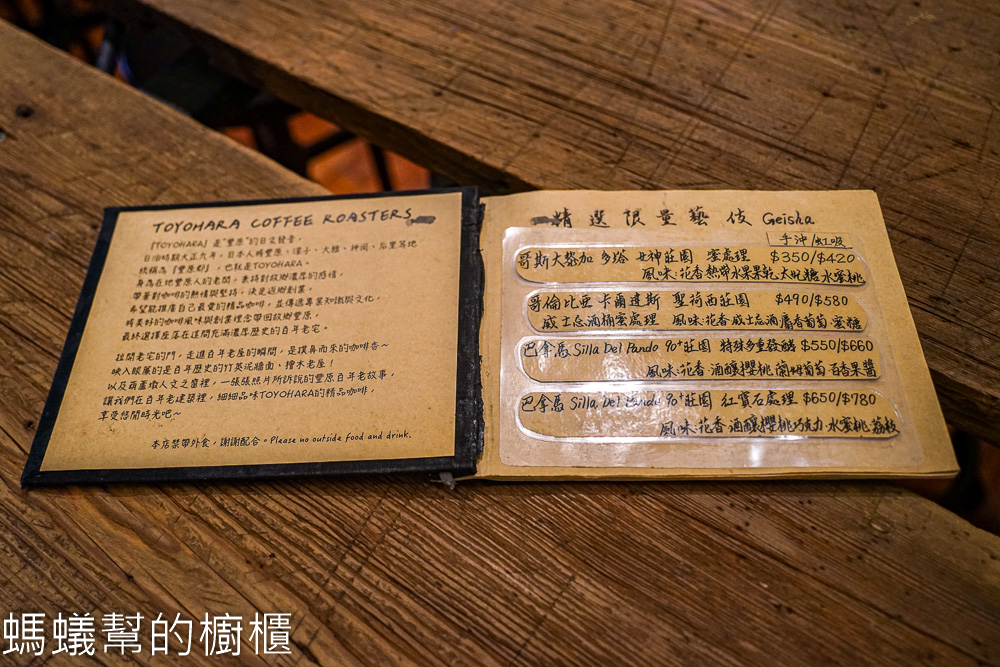 TOYOHARA COFFEE ROASTERS
『TOYOHARA』是"豐原"的日文發音。
日治時期大正九年，日本人將豐原、潭子、大雅、神岡、后里等地
統稱為『豐原郡』，也就是TOYOHARA。
身為在地豐原人的老闆，秉持對故鄉濃厚的感情，
帶著對咖啡的熱情與堅持，決定返鄉創業。
希望能推廣自己最愛的精品咖啡，並傳遞專業知識與文化，
將美好的咖啡風味與創業理念帶回故鄉豐原，
最終選擇座落在這間充滿濃厚歷史的百年老宅。
拉開老宅的門，走進百年老屋的瞬間，是撲鼻而來的咖啡香～
映入眼簾的是百年歷史的TR英泥牆面、檜木老屋！
以及葫蘆墩人文之窗裡，一張張照片所訴說的豐原百年老故事，
讓我們在百年老建築裡，細細品味TOYOHARA的精品咖啡，
享受悠閒時光吧～
本店禁帶外食，謝謝配合。Please no outside food and drink.
精選限量藝伎 Geisha
手沖/虹吸
哥斯大黎加 多塔 女神莊園 蜜處理 $350/$420
風味:花香 熱帶水果果乾 太妃糖 水蜜桃
哥倫比亞 卡爾達斯 聖荷西莊園 $490/$580
威士忌酒桶蜜處理 風味:花香 威士忌酒 麝香葡萄 蜜糖
巴拿馬 Silla Del Pando 90+莊園 特殊多重發酵 $550/$660
風味:花香 酒釀櫻桃 蘭姆葡萄 百香果醬
巴拿馬 Silla Del Pando 90+莊園 紅寶石處理 $650/$780
風味:花香 酒釀櫻桃巧克力 水蜜桃 荔枝
螞蟻幫的櫥櫃